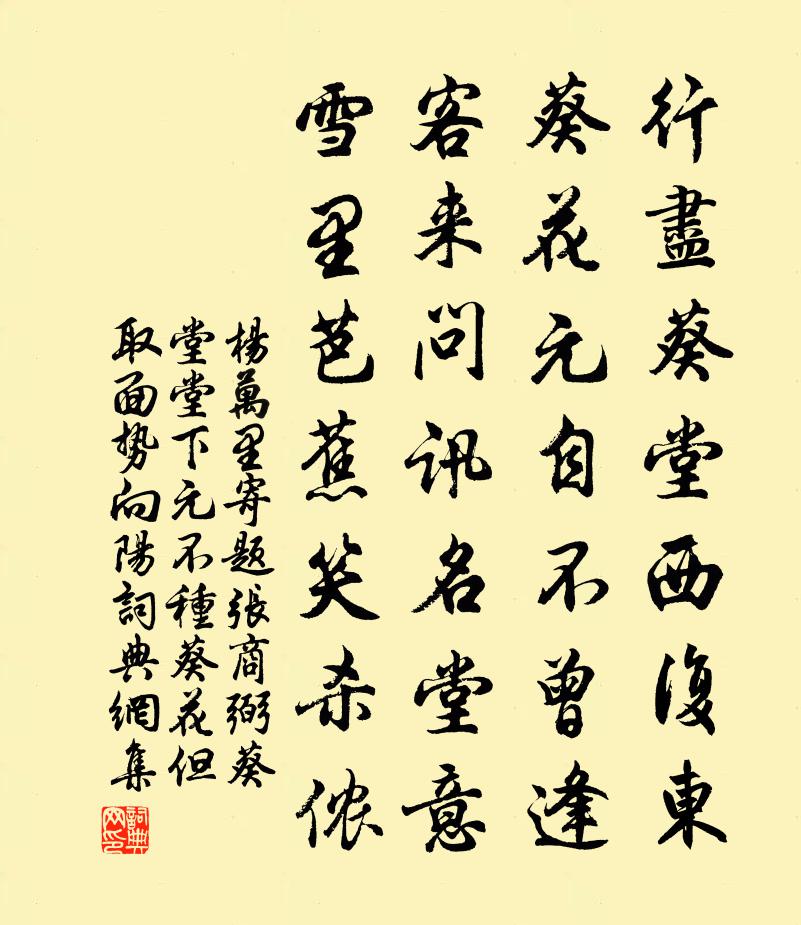 行盡葵堂西復東
葵花元自不曾逢
客来問訊名堂意
雪里芭蕉笑杀侬
楊萬里寄題張商弼葵
堂堂下元不種葵花但
取面势向陽詞典網集
詞典
网印